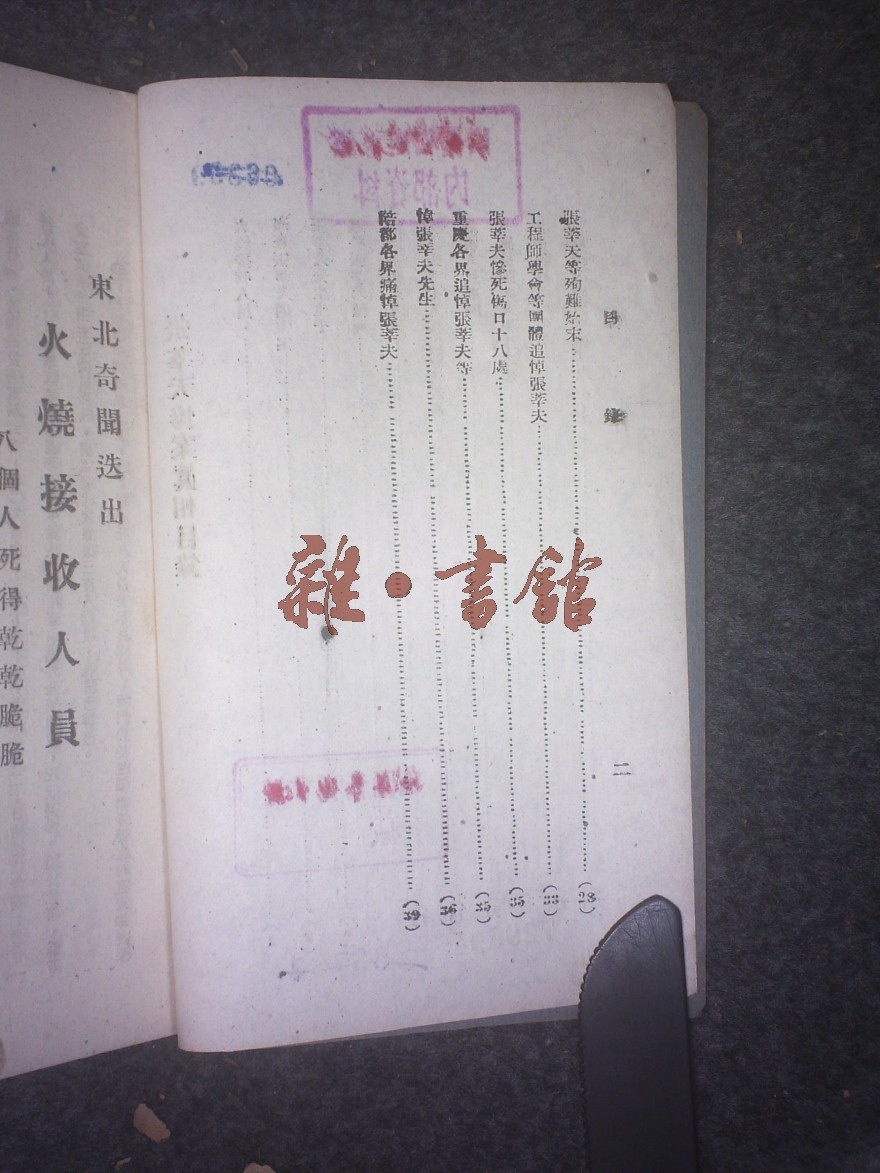 目錄 二
張莘天等殉難始末(28)
工程師學會等團體追悼張莘夫(33)
張莘夫慘死傷口十八處(35)
重慶各界追悼張莘夫等(35)
悼張莘夫先生(36)
陪都各界痛悼張莘夫(39)
東北奇聞迭出
火燒接收人員
八個人死得乾乾脆脆
雜·書館